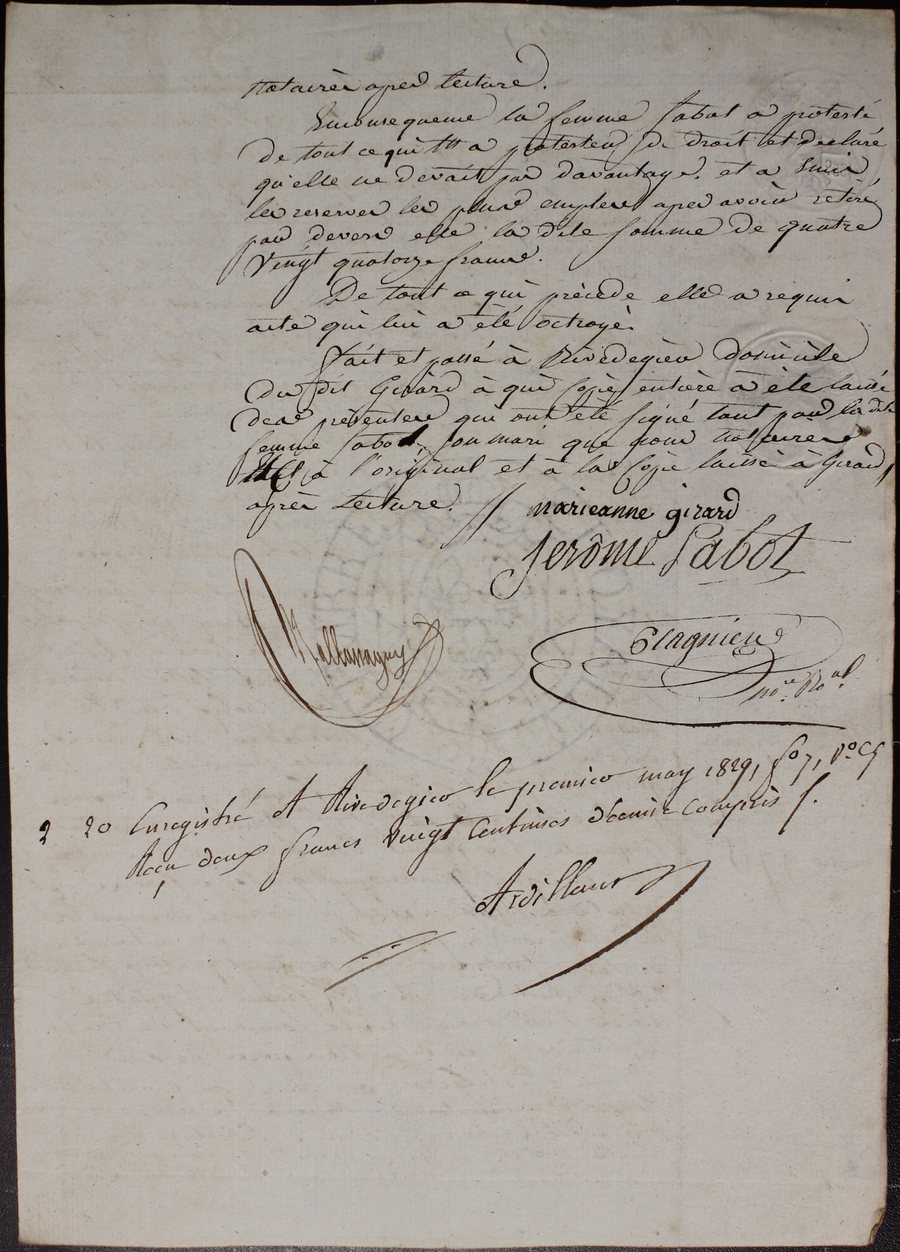 notaires apres lecture.
Enconsequence la femme Sabot a protesté
de tout ce qui est a protester de droit et declaré
qu'elle ne devait pas davantage. et a Suir
les reserver les plus amples apres avoir retiré
par devers elle la dite somme de quatre
vingt quatorze francs.
De tout ce qui précède elle a requis
acte qui lui a été octroyé.
fait et passé à Rivedegier domicile
du dit Girard à qui copie entière à été laissée
des présentes qui ont été signé tant par la dite
femme Sabot, son mari que pour notaires
à l'original et à la copie laissé à Girard,
après lecture.
marieanne girard
Jerôme Sabot
Plagnieu
no.re Ro.al
2 20 Enregistré A Rivedegier le premier may 1829, fo 7, Vo C5
Reçu deux francs Vingt Centimes décime compris
Ardillon